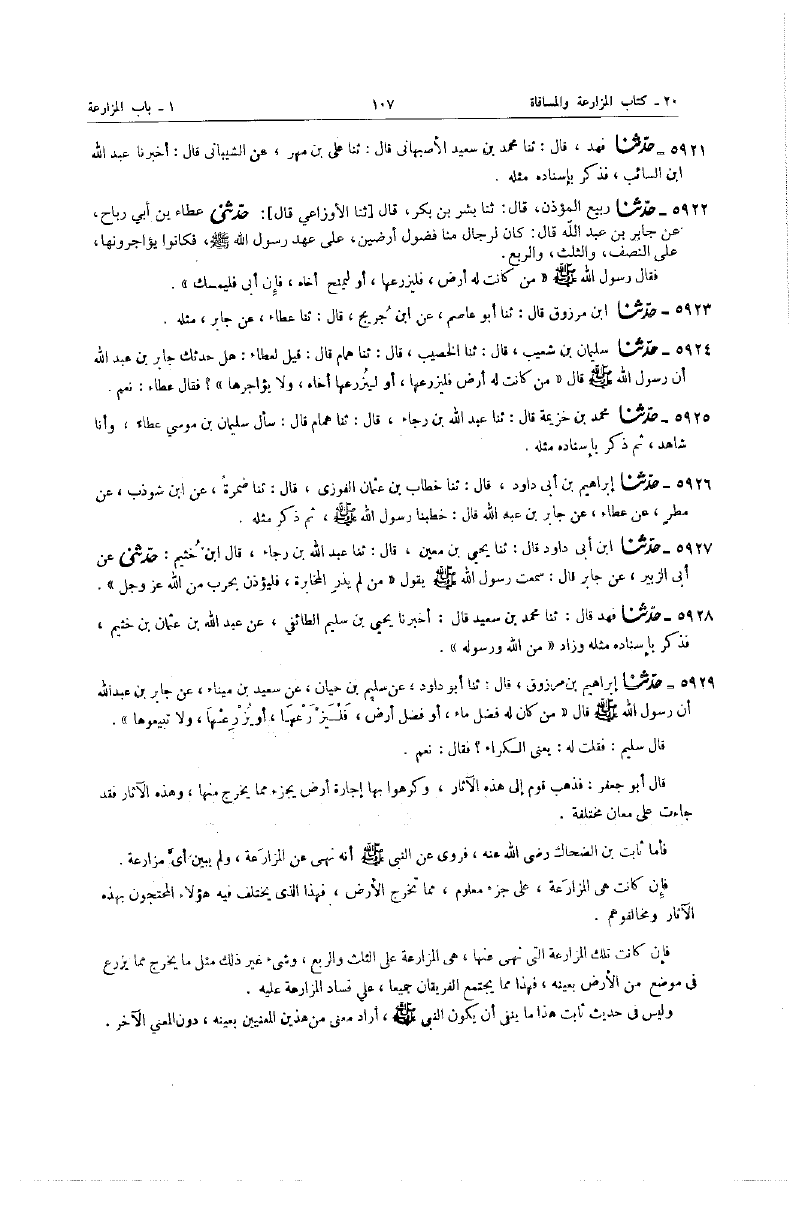 ٢٠ - كتاب المزارعة والمساقاة ١٠٧ ١ - باب المزارعة
٥٩٢١ - حدثنا فهد ، قال : ثنا محمد بن سعيد الأصبهانى قال : ثنا على بن مهر ، عن الشيبانى قال : أخبرنا عبد الله
ابن السائب ، فذكر بإسناده مثله .
٥٩٢٢ - حدثنا ربيع المؤذن، قال: ثنا بشر بن بكر، قال [ثنا الأوزاعي قال]: حدثنى عطاء بن أبي رباح،
عن جابر بن عبد اللّه قال: كان لرجال منا فضول أرضين، على عهد رسول الله ﷺ، فكانوا يؤاجرونها،
على النصف، والثلث، والربع.
فقال رسول الله ﷺ « من كانت له أرض ، فليزرعها ، أو ليمنح أخاه ، فإن أبى فليمسك » .
٥٩٢٣ - حدثنا ابن مرزوق قال : ثنا أبو عاصم ، عن ابن جُريج ، قال : ثنا عطاء ، عن جابر ، مثله .
٥٩٢٤ - حدثنا سليمان بن شعيب ، قال : ثنا الخصيب ، قال : ثنا همام قال : قيل لعطاء : هل حدثك جابر بن عبد الله
أن رسول الله ﷺ قال « من كانت له أرض فليزرعها ، أو ليُزرعها أخاه ، ولا يؤاجرها » ؟ فقال عطاء : نعم .
٥٩٢٥ - حدثنا محمد بن خزيمة قال : ثنا عبد الله بن رجاء ، قال : ثنا همام قال : سأل سليمان بن موسي عطاء ، وأنا
شاهد ، ثم ذكر بإسناده مثله .
٥٩٢٦ - حدثنا إبراهيم بن أبى داود ، قال : ثنا خطاب بن عثمان الفوزى ، قال : ثنا ضمرةُ ، عن ابن شوذب ، عن
مطرٍ ، عن عطاء ، عن جابر بن عبد الله قال : خطبنا رسول الله ﷺ ، ثم ذكر مثله .
٥٩٢٧ - حدثنا ابن أبى داود قال : ثنا يحيي بن معين ، قال : ثنا عبد الله بن رجاء ، قال ابن خُثيم : حدثنى عن
أبى الزبير ، عن جابر قال : سمعت رسول الله ﷺ يقول « من لم يذرِ المخابرة ، فليؤذن بحرب من الله عز وجل » .
٥٩٢٨ - حدثنا فهد قال : ثنا محمد بن سعيد قال : أخبرنا يحيي بن سليم الطائفي ، عن عبد الله بن عثمان بن خثيم ،
فذكر بإسناده مثله وزاد « من الله ورسوله » .
٥٩٢٩ - حدثنا إبراهيم بن مرزوق ، قال : ثنا أبو داود ، عن سليم بن حيان ، عن سعيد بن ميناء ، عن جابر بن عبدالله
أن رسول الله ﷺ قال « من كان له فضل ماء ، أو فضل أرض ، فَلْيَزْرَعْهَا ، أو يُزْرِعْهَا ، ولا تبيعوها » .
قال سليم : فقلت له : يعنى الكراء ؟ فقال : نعم .
قال أبو جعفر : فذهب قوم إلى هذه الآثار ، وكرهوا بها إجارة أرض بجزء مما يخرج منها ، وهذه الآثار فقد
جاءت على معان مختلفة .
فأما ثابت بن الضحاك رضى الله عنه ، فروى عن النبي ﷺ أنه نهى عن المزارَعة ، ولم يبين أىَّ مزارعة .
فإن كانت هى المزارَعة ، على جزء معلوم ، مما تُخرج الأرض ، فهذا الذى يختلف فيه هؤلاء المحتجون بهذه
الآثار ومخالفوهم .
فإن كانت تلك المزارعة التى نهى عنها ، هى المزارعة على الثلث والربع ، وشىء غير ذلك مثل ما يخرج مما يزرع
فى موضع من الأرض بعينه ، فهذا مما يجتمع الفريقان جميعا ، علي فساد المزارعة عليه .
وليس فى حديث ثابت هذا ما ينفى أن يكون النبى ﷺ ، أراد معنى من هذين المعنيين بعينه ، دون المعنى الآخر .